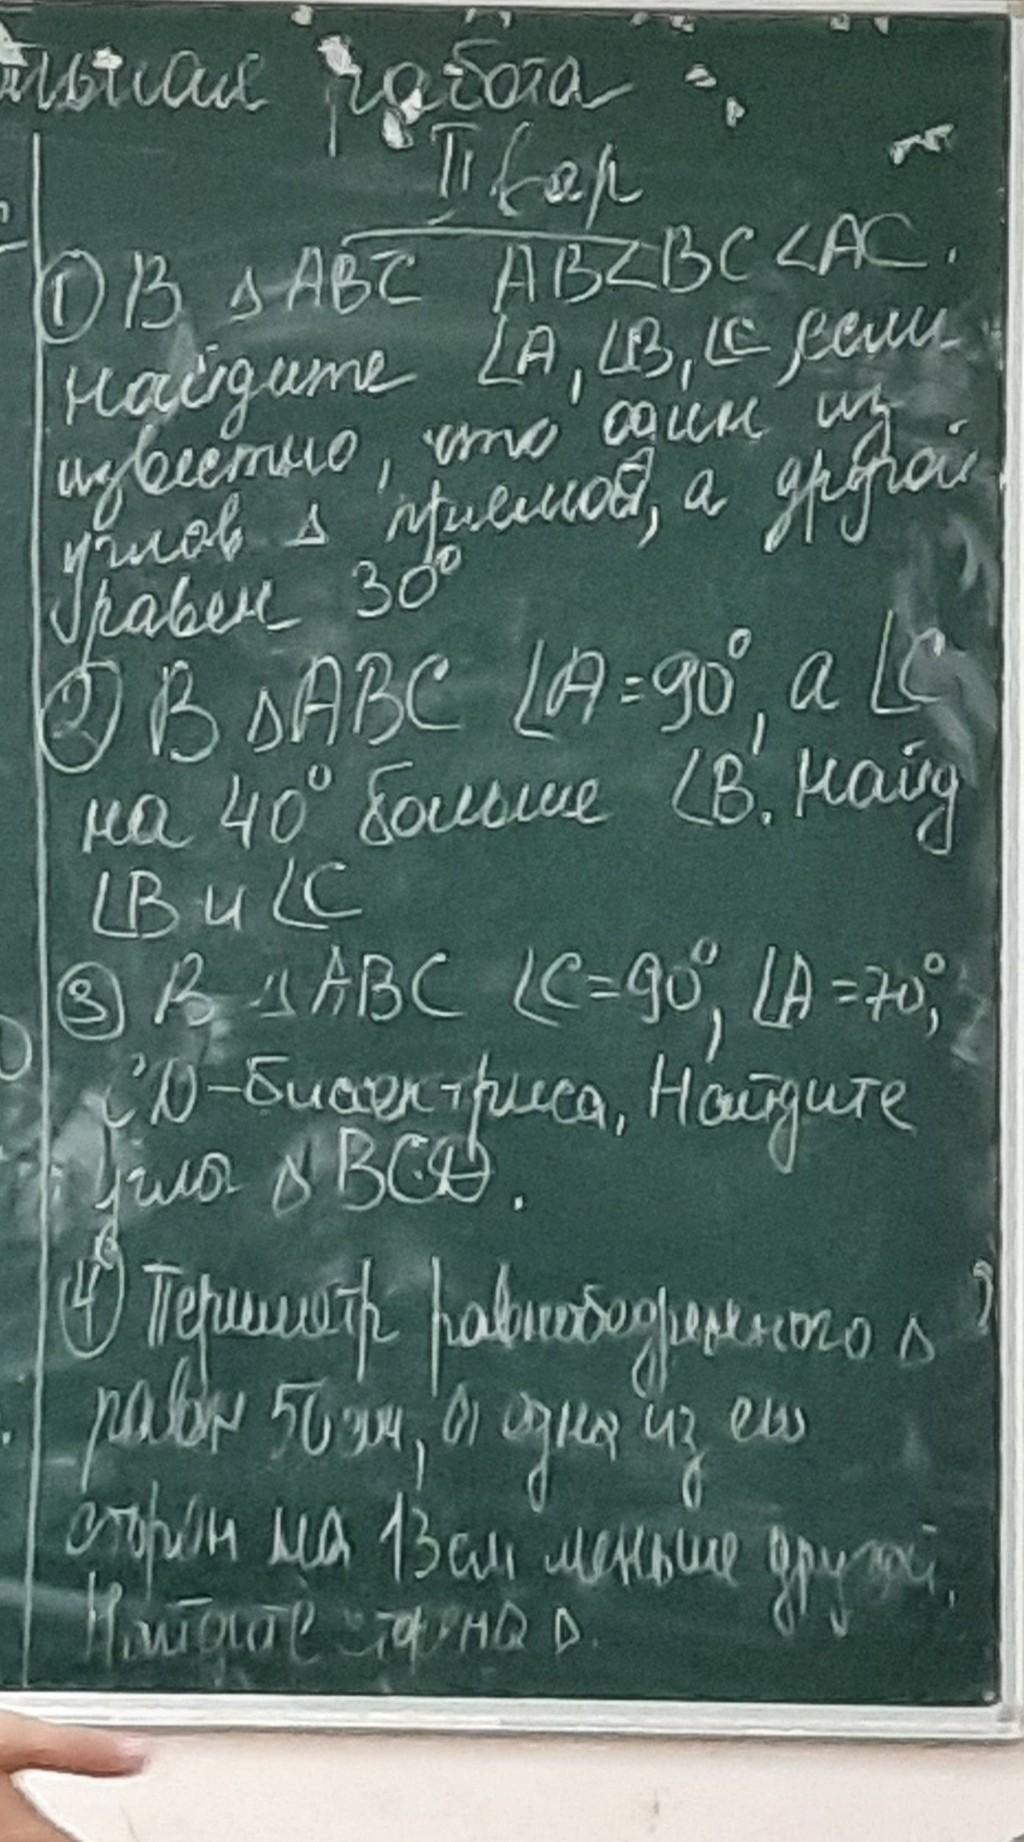 работа
II вар
① В △ ABC AB<BC<AC.
найдите ∠A, ∠B, ∠C, если
известно, что один из
углов △ прямой, а другой
равен 30°
② В △ABC ∠A=90°, а ∠C
на 40° больше ∠B. Найд
∠B и ∠C
③ В △ABC ∠C=90°, ∠A=70°,
CD-биссектриса, Найдите
углы △ BCD.
④ Периметр равнобедренного △
равен 50 см, а одна из его
сторон на 13 см меньше другой.
Найдите стороны △.